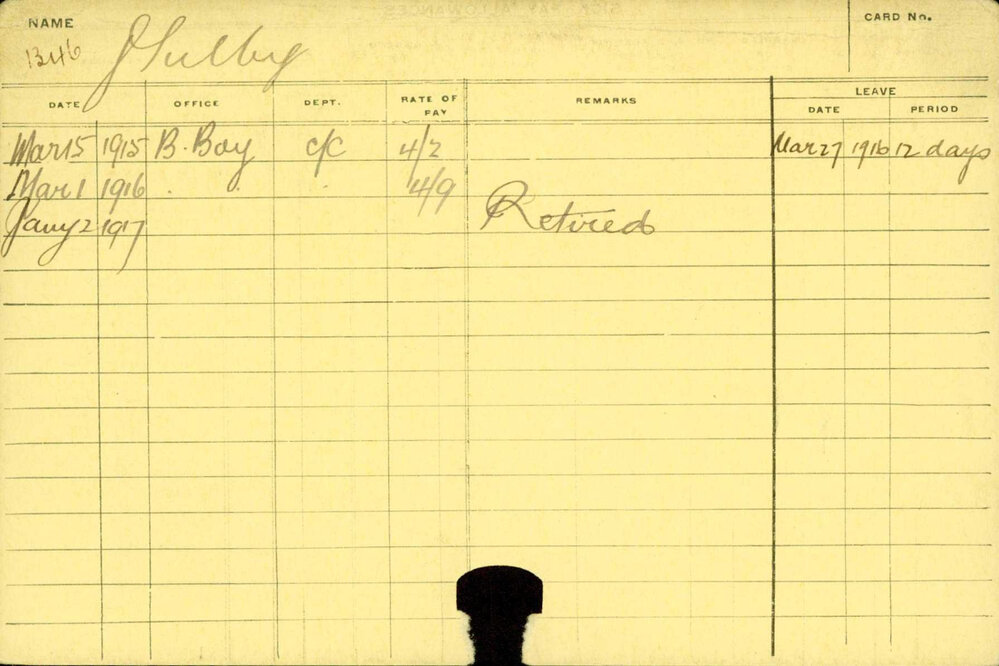 NAME
CARD No.
1346 J Sulby
LEAVE
DATE OFFICE DEPT. RATE OF PAY REMARKS DATE PERIOD
Mar 15 1915 B. Boy c/c 4/2 Mar 27 1916 12 days
Mar 1 1916 . . . 4/9
Jany 2 1917 Retired